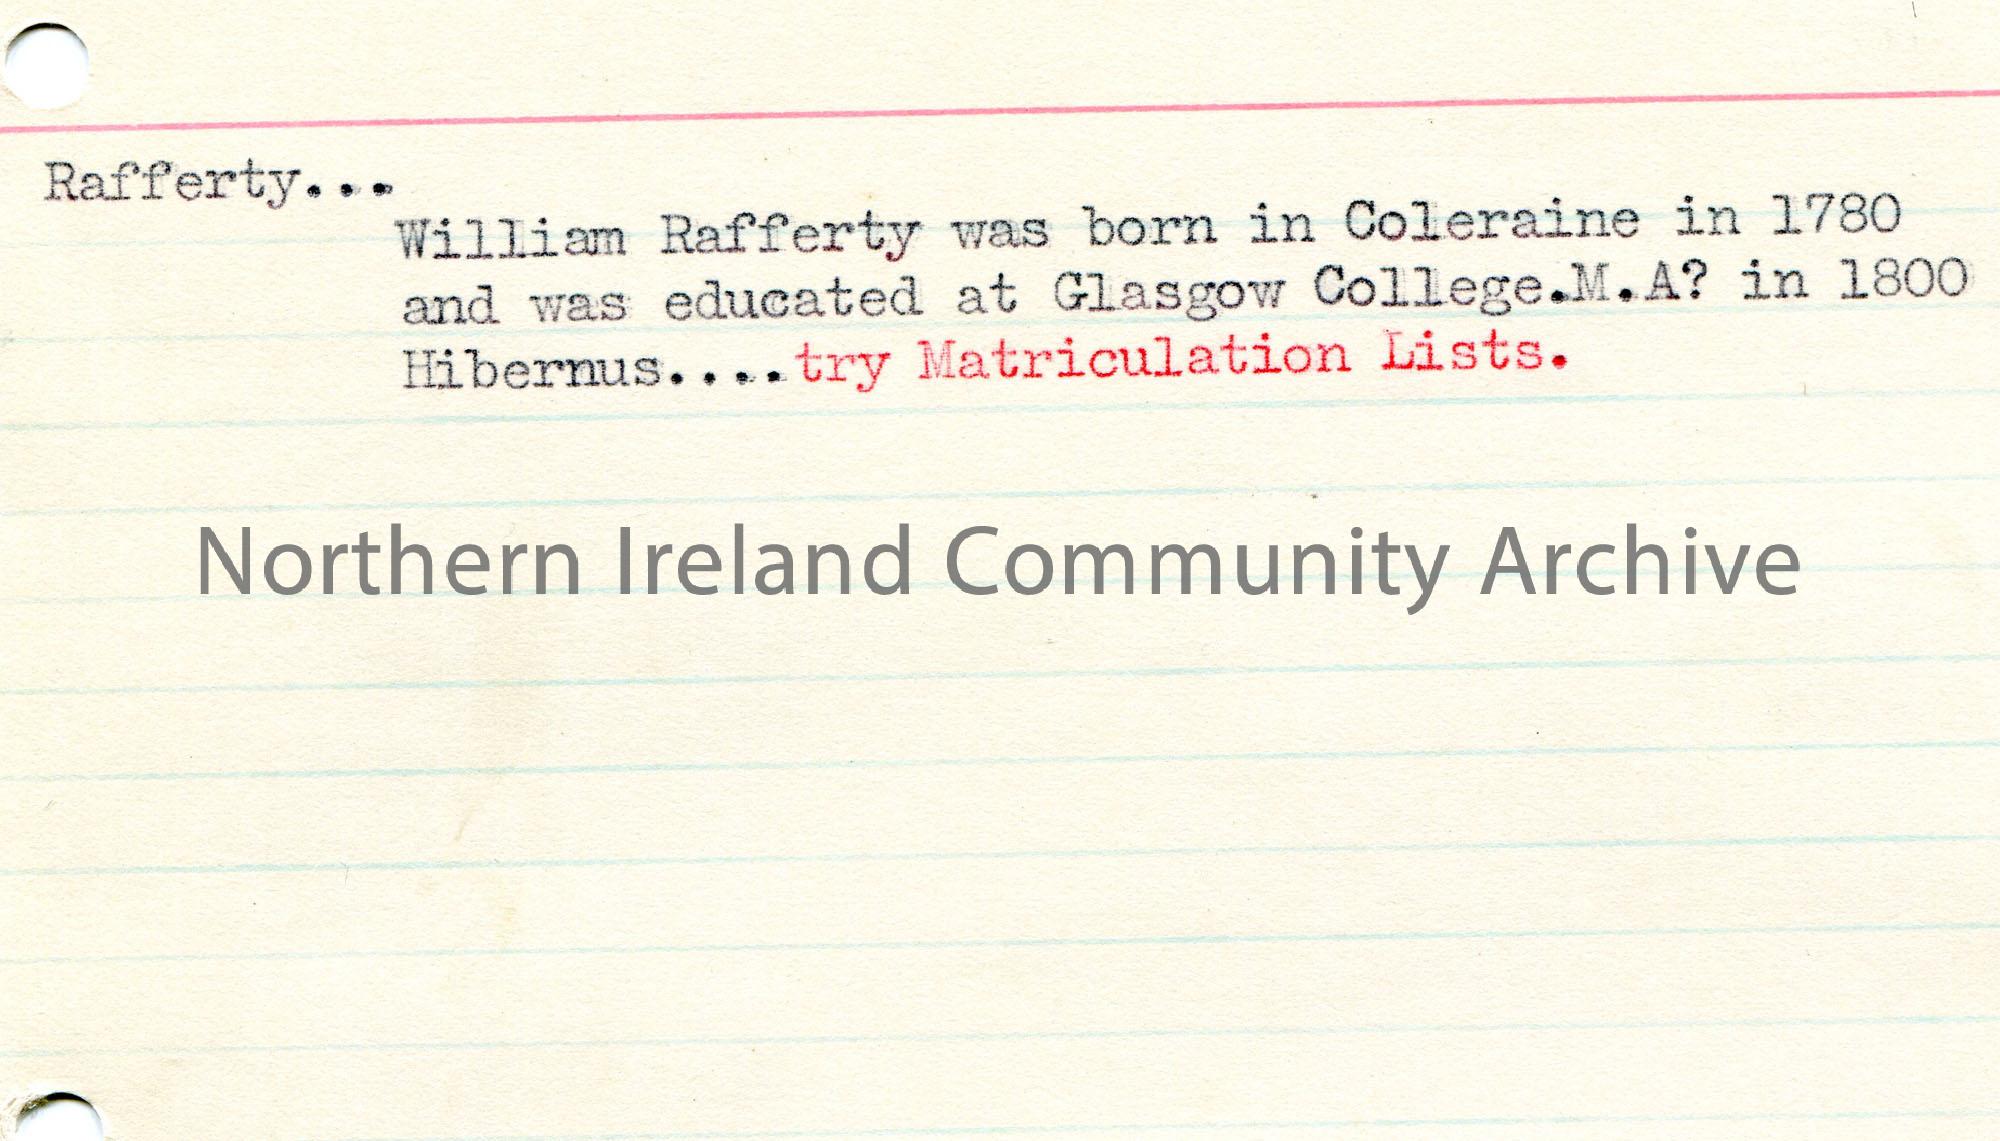 Rafferty...
William Rafferty was born in Coleraine in 1780
and was educated at Glasgow College.M.A? in 1800
Hibernus....try Matriculation Lists.
Northern Ireland Community Archive